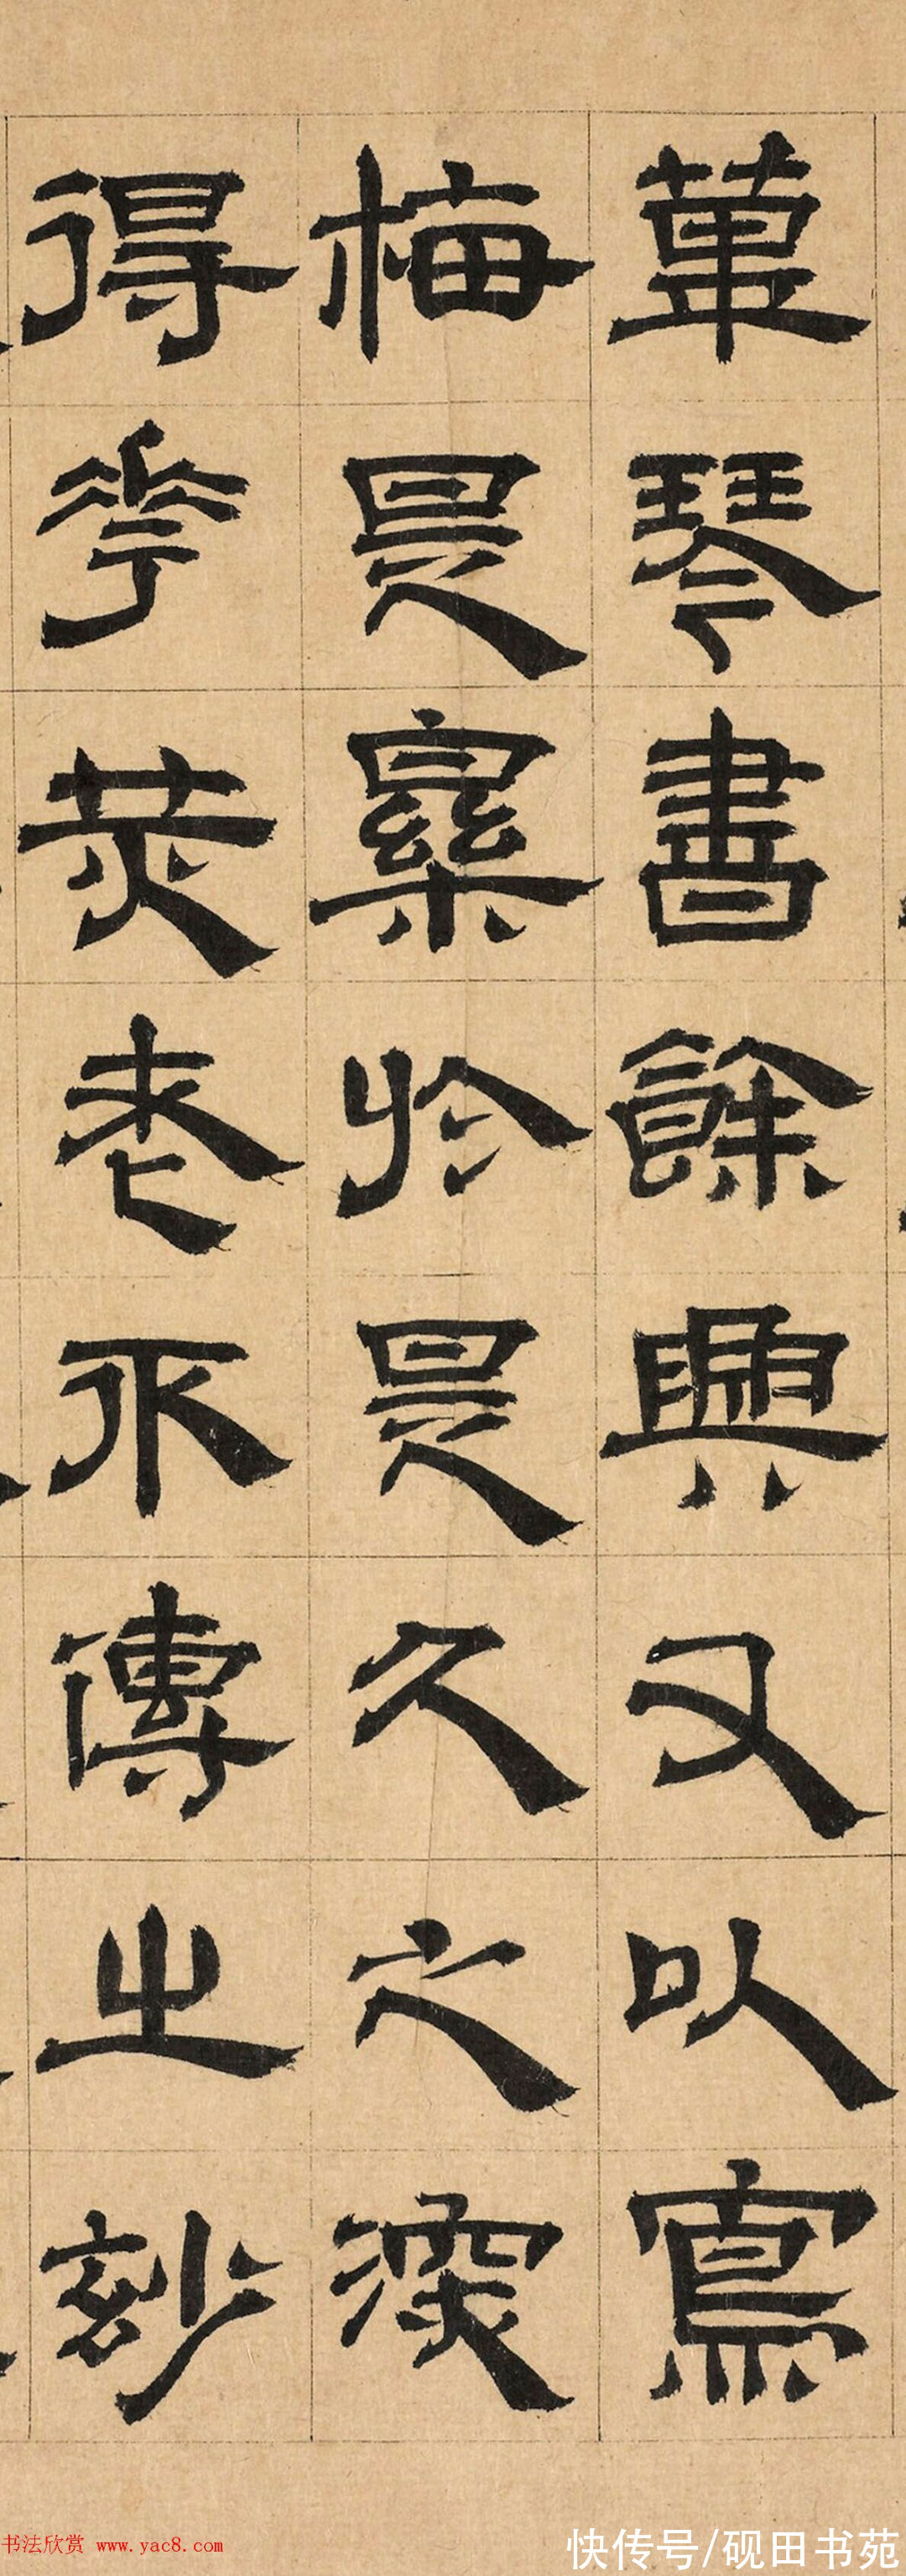 董琴書餘興又以寫
梅是累於是久之深
得華炗老不傳之玅
书法欣赏 www.yac8.com
快传号/砚田书苑